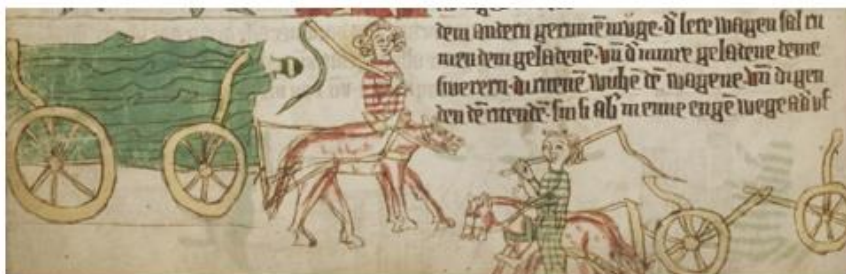 dem andern gerumē muge · d̄ lere wagen sal ru
men dem geladenē · vn̄ d̄ minre geladene deme
swerern · d̓ ritenē wiche dē wagene · vn̄ di gen
den dē ritendē · sin si ab̓ in eime engē wege ad̓ vf